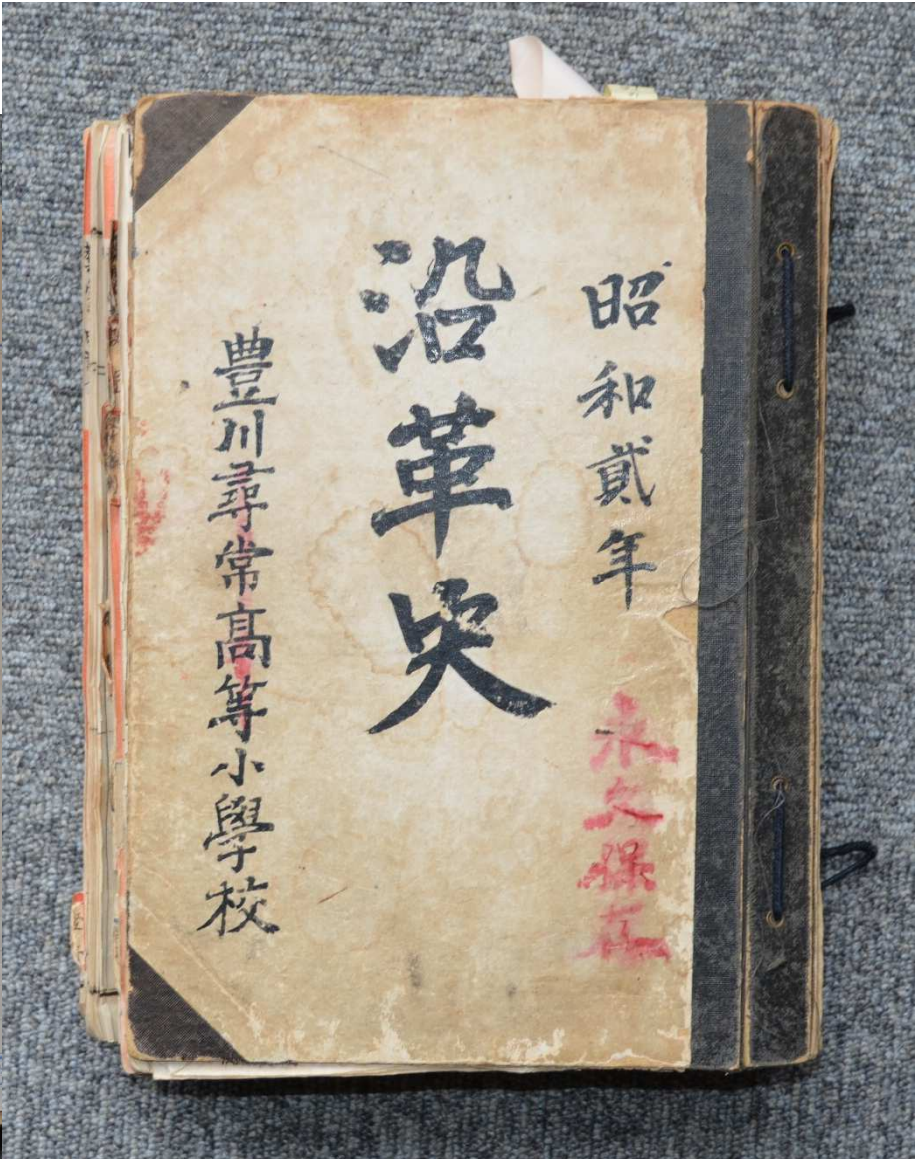 昭和貳年
永久保存
沿革史
豊川尋常高等小學校